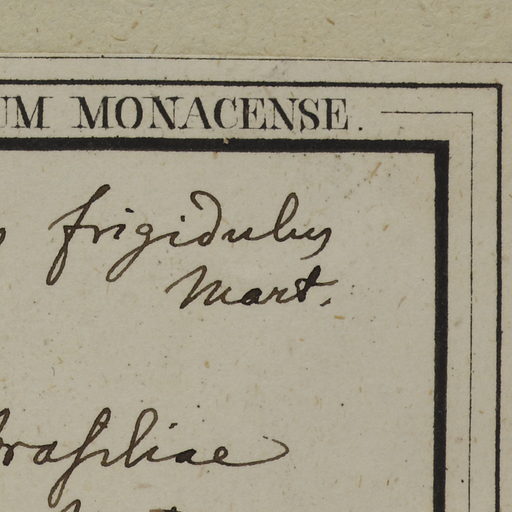 UM MONACENSE.
frigidulus
Mart.
brasiliae